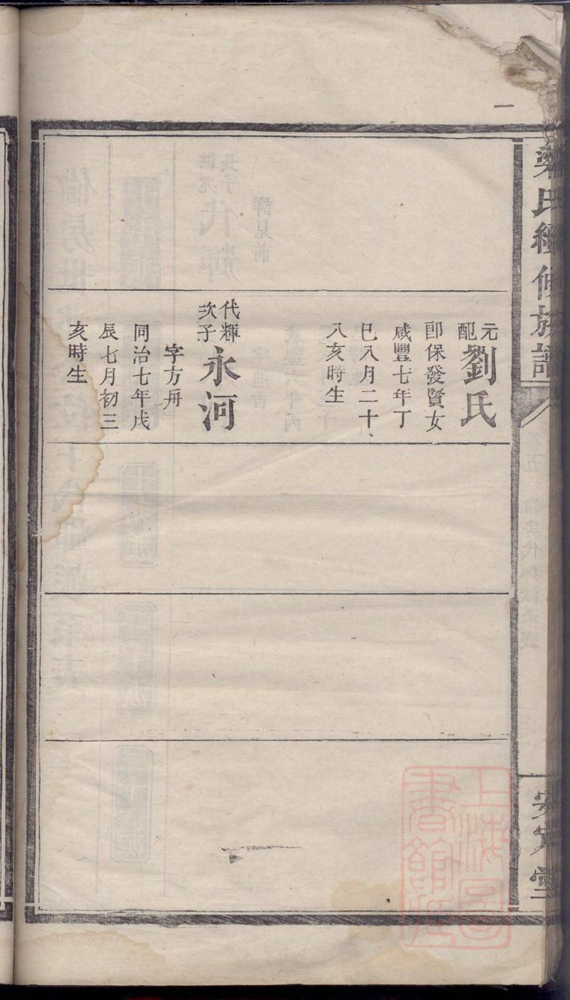 梁氏續修族譜
元配劉氏
即保發賢女
咸豐七年丁
巳八月二十
八亥時生
代輝次子永河
字方舟
同治七年戊
辰七月初三
亥時生
安定堂
上海圖
書館藏